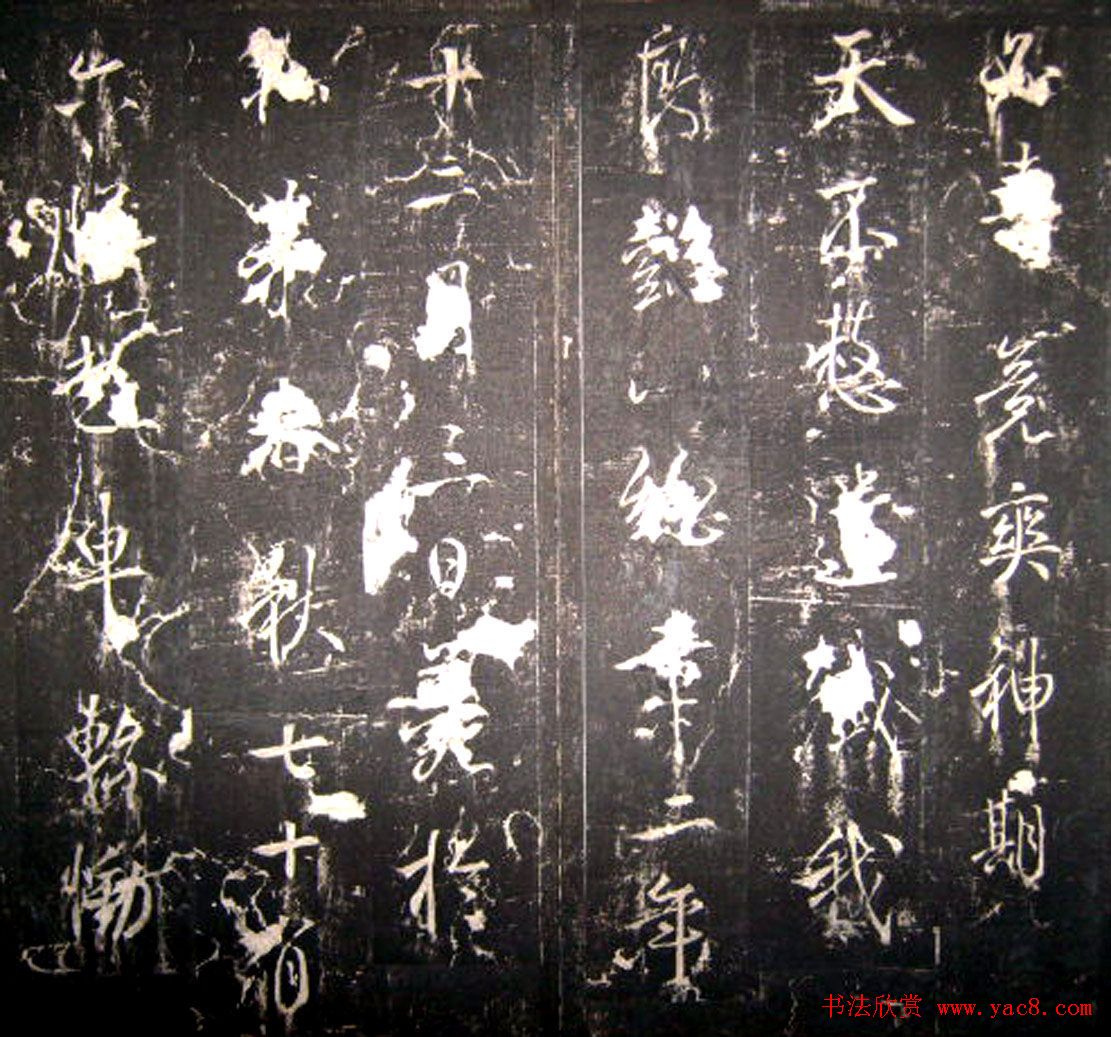 壽竟爽神期
天不慭遺殲我
以總章二年
十二月三日薨於
第春秋七十有
六軫慟
书法欣赏 www.yac8.com